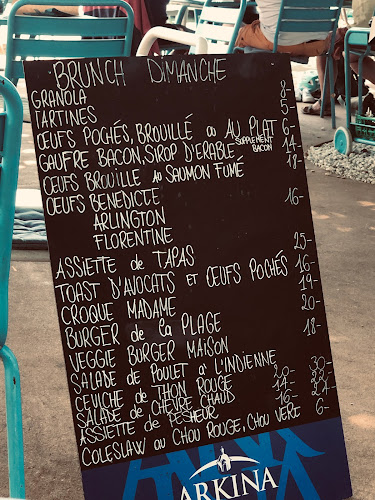 ARKINA
BRUNCH DIMANCHE
GRANOLA 8-
TARTINES 5-
ŒUFS POCHÉS, BROUILLÉ ou AU PLAT 6-
SUPPLEMENT BACON
GAUFRE BACON, SIROP D'ERABLE 14-
ŒUFS BROUILLE AU SAUMON FUMÉ 18-
OEUFS BENEDICTE 16-
ARLINGTON
FLORENTINE
ASSIETTE de TAPAS 25-
TOAST D'AVOCATS ET ŒUFS POCHÉS 16-
CROQUE MADAME 19-
BURGER de la PLAGE 20-
VEGGIE BURGER MAISON 18-
SALADE de POULET à L'INDIENNE 20-
CEVICHE de THON ROUGE 20-
SALADE de CHÈVRE CHAUD 14-
ASSIETTE de PESHEUR 16-
COLESLAW au CHOU ROUGE, CHOU VERT 6-
ARKINA